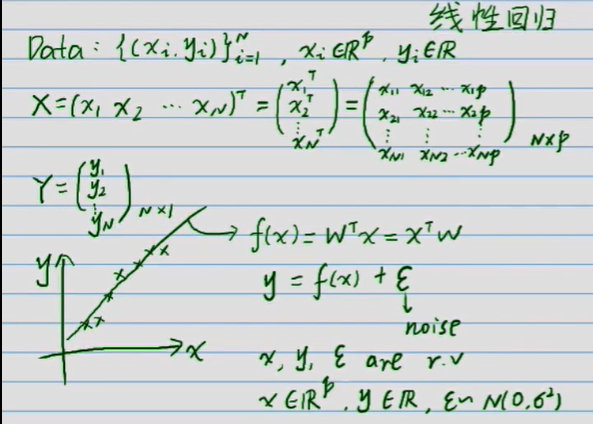 线性回归
Data: {(xᵢ, yᵢ)}ᵢ₌₁ᴺ, xᵢ∈ℝᵖ, yᵢ∈ℝ
X=(x₁ x₂ ⋯ x_N)ᵀ = (x₁ᵀ x₂ᵀ ⋮ x_Nᵀ) = (x₁₁ x₁₂ ⋯ x₁p x₂₁ x₂₂ ⋯ x₂p ⋮ ⋮ ⋮ x_N1 x_N2 ⋯ x_Np)N×p
Y=(y₁ y₂ ⋮ y_N)N×1
f(x)=Wᵀx=xᵀW
y
y = f(x) + ε
noise
x
x, y, ε are r.v
x∈ℝᵖ, y∈ℝ, ε~N(0,σ²)